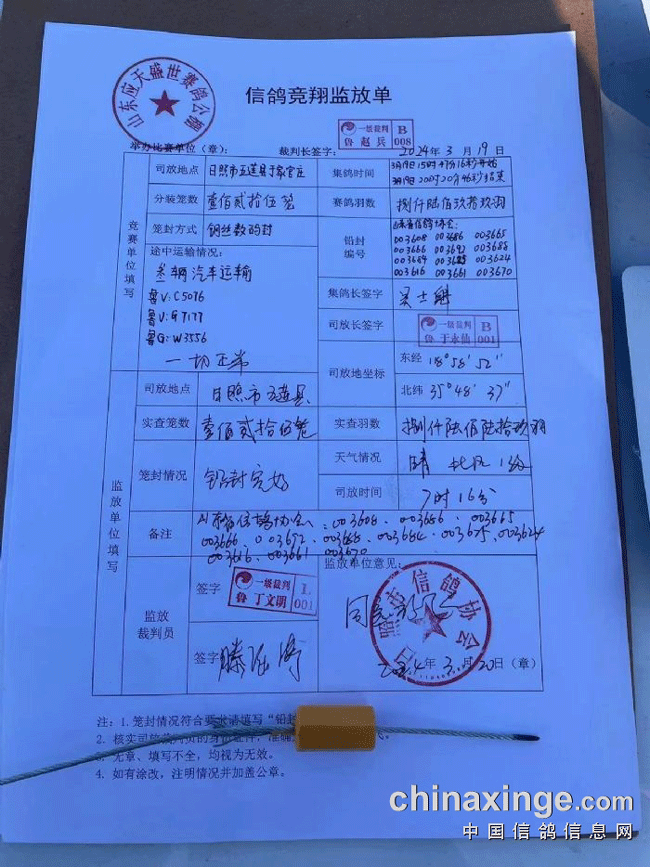 信鸽竞翔监放单
山东应天盛世赛鸽公棚
举办比赛单位(章):
裁判长签字:
一级裁判 B
鲁 赵兵 008
2024年3月19日
竞赛单位填写
司放地点
日照市五莲县于家官庄
集鸽时间
3月19日15时47分16秒开始
3月19日20时20分46秒结束
分装笼数
壹佰贰拾伍笼
赛鸽羽数
捌仟陆佰
笼封方式
钢丝数码封
铅封编号
山东省信鸽协会:
003608 003686 003665
003666 003692 003688
003684 003624
003616 003661 003670
途中运输情况:
叁辆汽车运输
鲁V:C5076
鲁V:G7177
鲁G:W3556
一切正常
集鸽长签字
司放长签字
一级裁判 B
鲁 于永仙 001
司放地坐标
东经
18°58′52″
北纬
35°48′37″
监放单位填写
司放地点
日照市五莲县
实查笼数
壹佰贰拾伍笼
实查羽数
捌仟陆佰陆拾玖羽
笼封情况
铅封完好
天气情况
晴 北风1级
司放时间
7时16分
备注
山东省信鸽协会:003608、003686、003665
003666、003692、003688、003684、003675、003624
003616、003661、003670
监放裁判员
签字
一级裁判 1.
鲁 丁文明 001
签字
监放单位意见:
日照市信鸽协会
2024年3月20日(章)
注:1.笼封情况符合要求请填写“铅封
2.
3.无章、填写不全,均视为无效。
4.如有涂改,注明情况并加盖公章。
chinaxinge.com
中国信鸽信息网